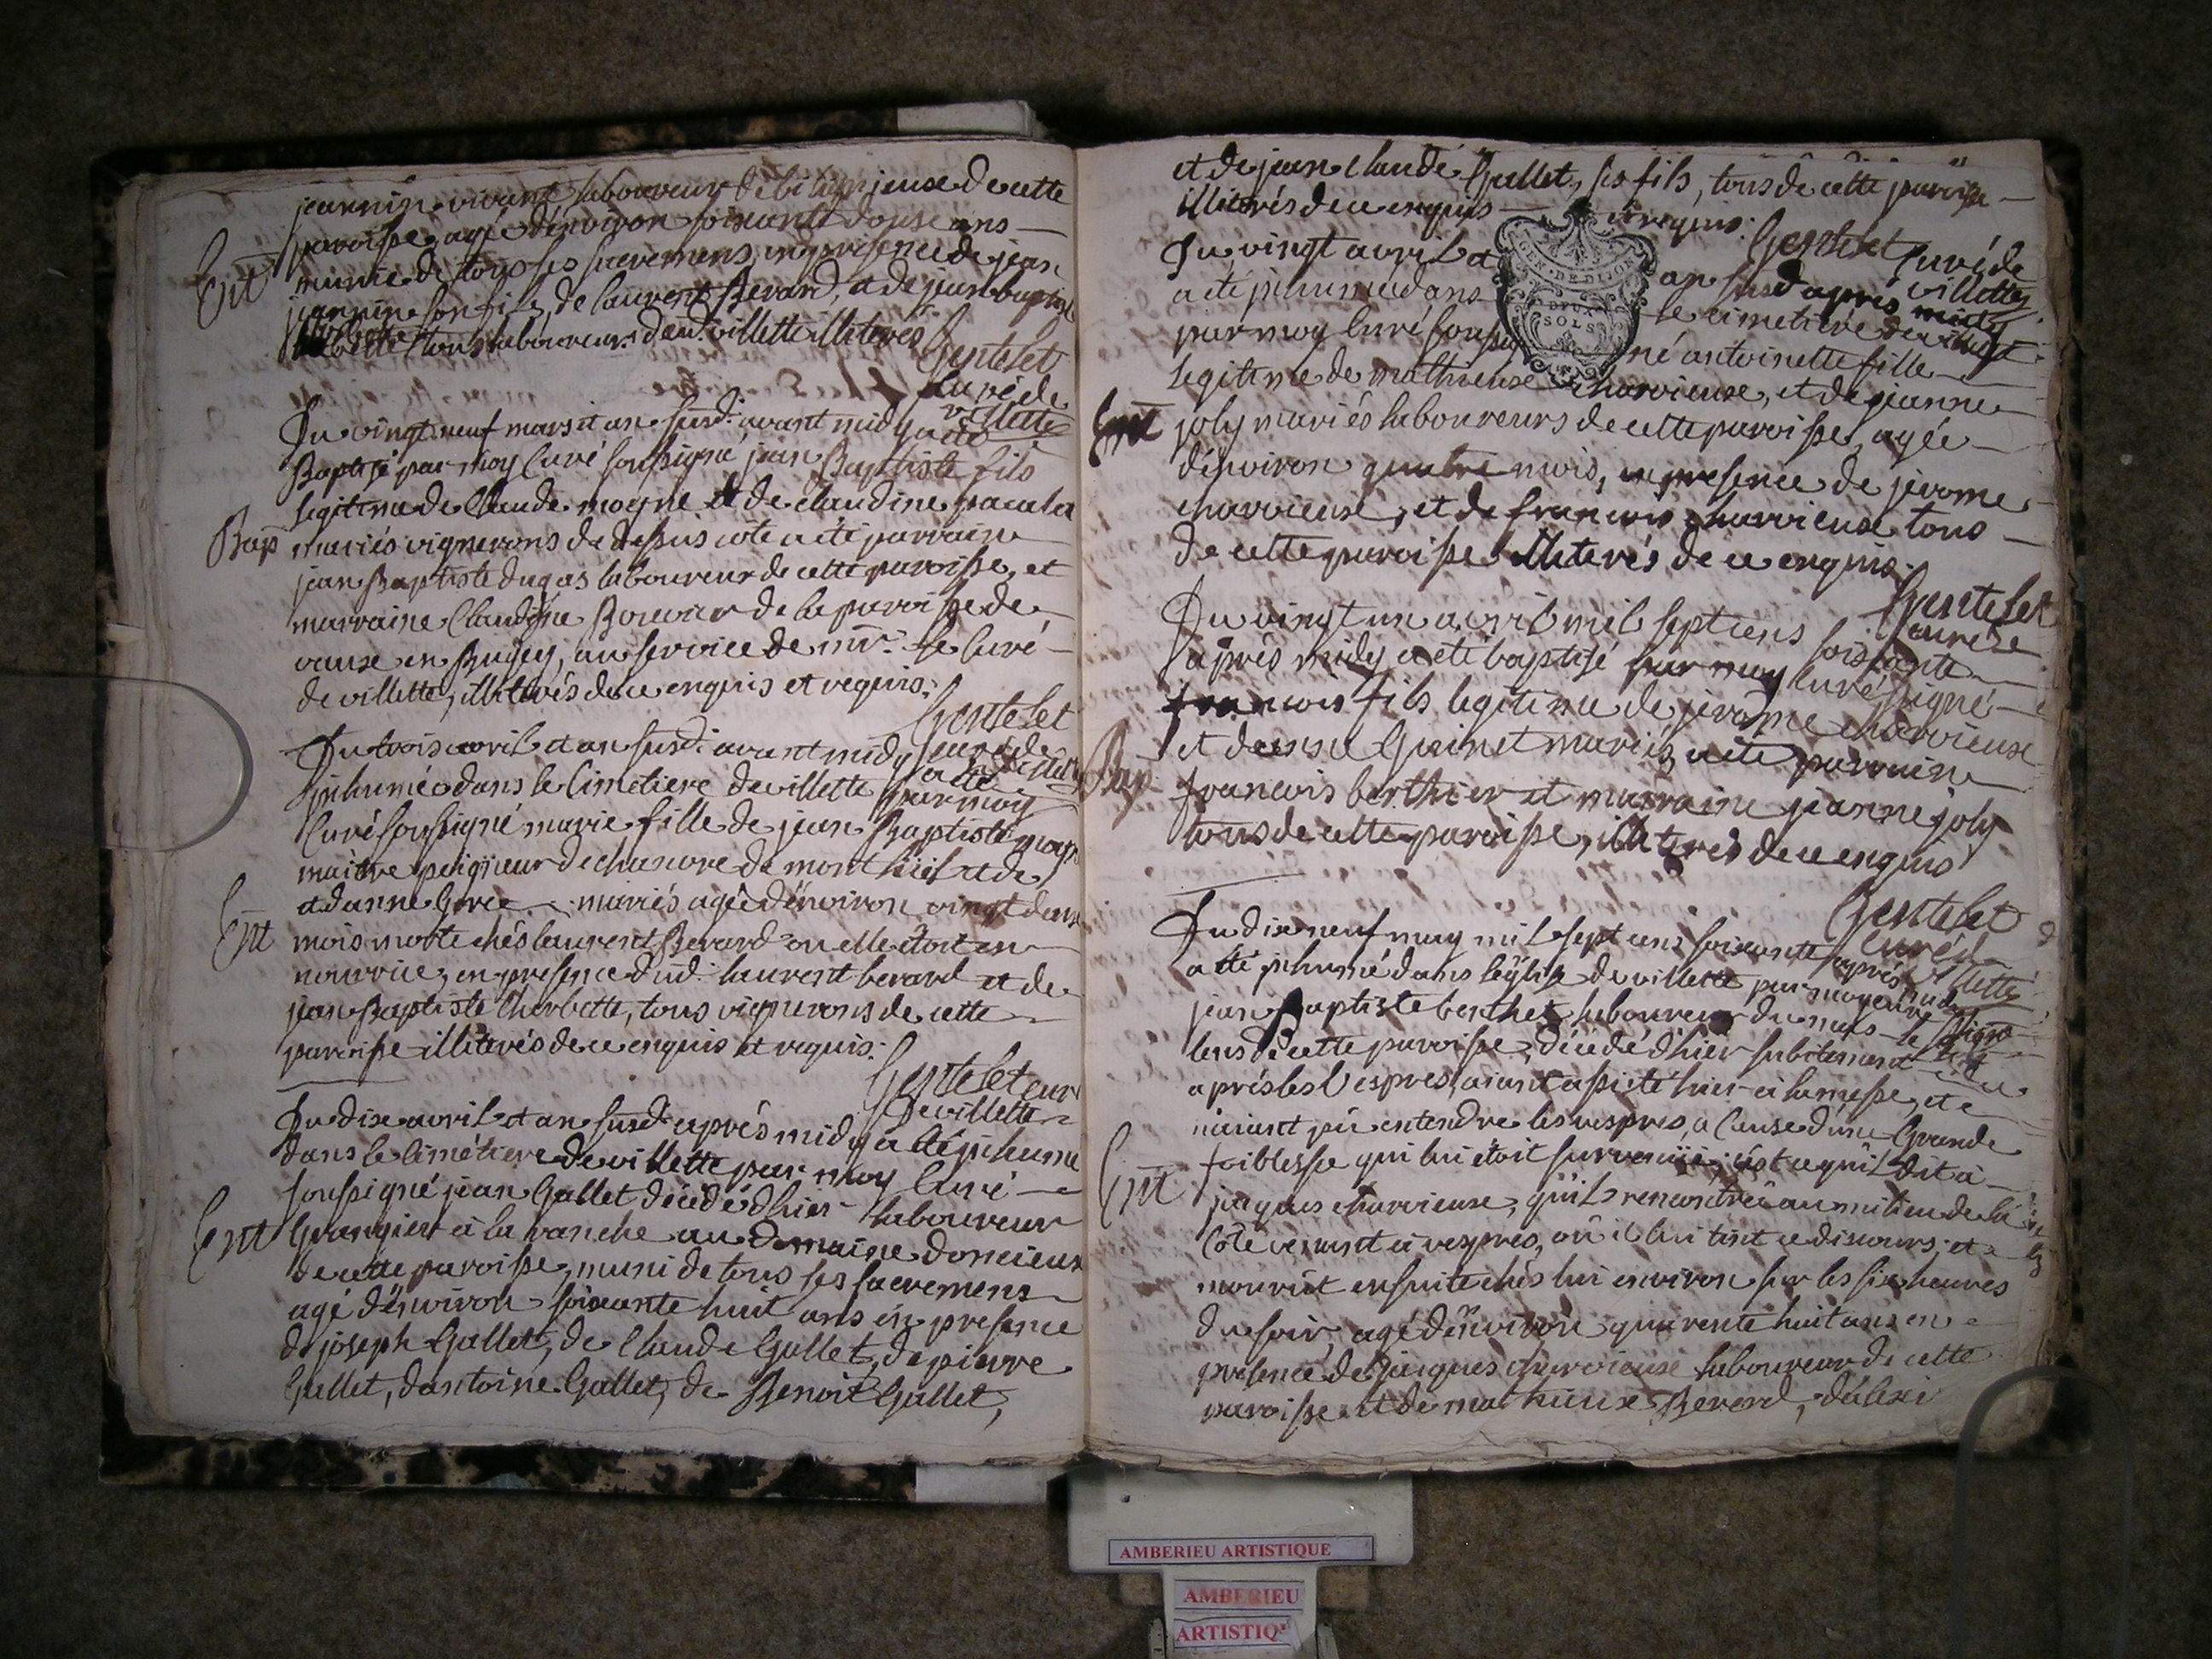 jeannin vivant laboureur de bilignieux de cette
paroisse, agé d'environ soixante douse ans
Ent munie de tous ses sacremens, en presence de jean
jeannin son fils, de laurent Berard, et de jean baptiste
tous laboureurs dud. villette illiterés
Gentelet
Curé de
villette
Du vingt neuf mars et an susd. avant midy a été
Baptisé par moy Curé soussigné jean Baptiste fils
legitime de Claude moyne et de claudine
Bap mariés vignerons de dessus cote a été parrain
jean Baptiste dugas laboureur de cette paroisse, et
marraine Claudine Bouvier de la paroisse de
vaux en Bugey, au service de mr. le Curé
de villette, illiterés de ce enquis et requis.
Gentelet
curé de
villette
Du trois avril et an susd. avant midy a été
inhumée dans le Cimetiere de villette par moy
Curé soussigné marie fille de jean Baptiste
maitre peigneur de chanvre de mont luel et de
et d'anne mariés agée d'environ vingt deux
Ent mois morte chés laurent Berard ou elle étoit en
nourrice, en presence dud. laurent berard et de
jean Baptiste Cherbette, tous vignerons de cette
paroisse illiterés de ce enquis et requis.
Gentelet curé
de villette
Du dix avril et an susd. après midy a été inhumé
dans le Cimétiere de villette par moy Curé
soussigné jean Gallet décédé d'hier laboureur
Ent Grangier à la ranche au domaine
de cette paroisse, muni de tous ses sacremens
agé d'environ soixante huit ans en presence
de joseph Gallet, de Claude Gallet, de pierre
Gallet, d'antoine Gallet, de Benoit Gallet,
et de jean Claude Gallet, ses fils, tous de cette paroisse
illiterés de ce enquis et requis.
Gentelet Curé de
villette
Du vingt avril et an susd. après midy
a été inhumée dans le cimetiere de villette
par moy Curé soussigné antoinette fille
legitime de mathieu charvieux, et de jeanne
Ent joly mariés laboureurs de cette paroisse, agée
d'environ quatre mois, en presence de jerome
charvieux, et de francois charvieux tous
de cette paroisse illiterés de ce enquis.
Gentelet
curé de
Du vingt un avril mil sept cens soixante
après midy a été baptisé par moy Curé signé
francois fils legitime de jerome charvieux
et de Guinet mariés, a été parrain
Bap francois berthier et marraine jeanne joly
tous de cette paroisse, illiterés de ce enquis
Gentelet
curé de
villette
Du dix neuf may mil sept cens soixante après midy
a été inhumé dans l'église de villette par moy curé
jean Baptiste berthet laboureur du
de cette paroisse, décédé d'hier subitement
après les Vespres, aiant assisté hier à la messe, et
n'aiant pû entendre les vespres, a Cause d'une Grande
foiblesse qui lui étoit survenüe; c'est ce qu'il dit à
Ent jacques charvieux, qu'il rencontra au milieu de la
Côte venant à vespres, où il lui tint ce discours; et
mourut ensuite chés lui environ sur les six heures
du soir, agé d'environ quarente huit ans en
presence de jacques charvieux laboureur de cette
paroisse et de mathieu Berard,
GEN. DE DIJON
DEUX
SOLS
AMBERIEU ARTISTIQUE
AMBERIEU
ARTISTIQ